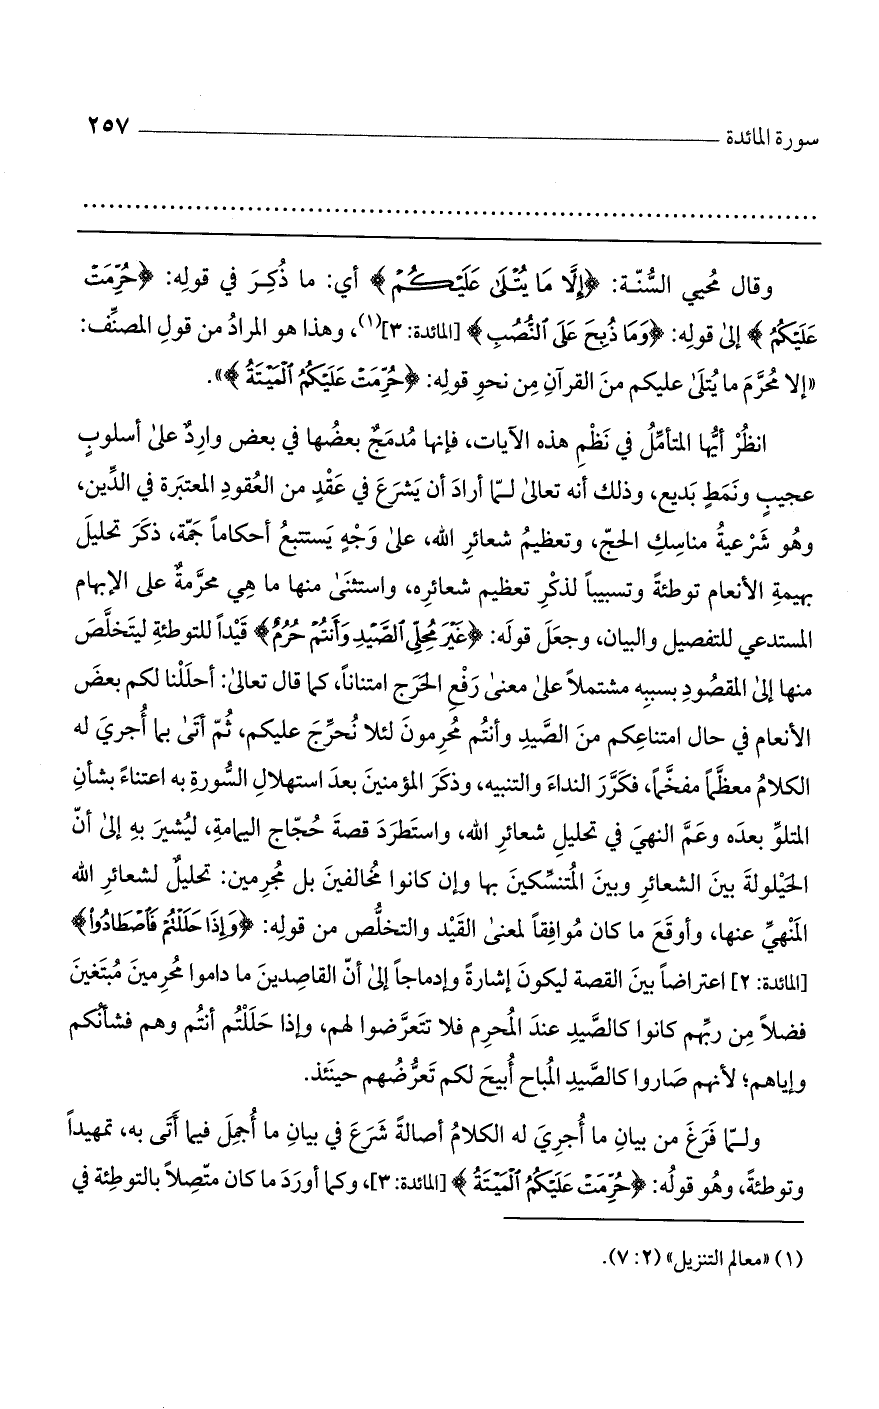 سورة المائدة ٢٥٧
وقال مُحيي السُّنّة: ﴿إِلَّا مَا يُتْلَىٰ عَلَيْكُمْ﴾ أي: ما ذُكِرَ في قولِه: ﴿حُرِّمَتْ
عَلَيْكُمُ﴾ إلىٰ قولِه: ﴿وَمَا ذُبِحَ عَلَى ٱلنُّصُبِ﴾ [المائدة: ٣](١)، وهذا هو المرادُ من قولِ المصنِّف:
«إلا مُحرَّمَ ما يُتلَىٰ عليكم منَ القرآنِ مِن نحوِ قولِه: ﴿حُرِّمَتْ عَلَيْكُمُ ٱلْمَيْتَةُ﴾».
انظُرْ أيُّها المتأمِّلُ في نَظْمِ هذه الآيات، فإنها مُدمَجٌ بعضُها في بعض واردٌ علىٰ أسلوبٍ
عجيبٍ ونَمَطٍ بَديع، وذلك أنه تعالىٰ لـمّا أرادَ أن يَشرَعَ في عَقْدٍ من العُقودِ المعتبَرة في الدِّين،
وهُو شَرْعيةُ مناسِكِ الحجّ، وتعظيمُ شعائرِ الله، علىٰ وَجْهٍ يَستتبعُ أحكاماً جَمّة، ذكَرَ تحليلَ
بهيمةِ الأنعام توطئةً وتسبيباً لذكْرِ تعظيم شعائرِه، واستثنَىٰ منها ما هِي محرَّمةٌ على الإبهام
المستدعي للتفصيل والبيان، وجعَلَ قولَه: ﴿غَيْرَ مُحِلِّي ٱلصَّيْدِ وَأَنتُمْ حُرُمٌ﴾ قَيْداً للتوطئةِ ليَتخلَّصَ
منها إلىٰ المقصُودِ بسببِه مشتملاً علىٰ معنىٰ رَفْعِ الحَرَج امتناناً، كما قال تعالىٰ: أحلَلْنا لكم بعضَ
الأنعام في حال امتناعِكم منَ الصَّيدِ وأنتُم مُحرِمونَ لئلا نُحرِّجَ عليكم، ثُمّ أتَىٰ بما أُجريَ له
الكلامُ معظَّماً مفخَّماً، فكَرَّرَ النداءَ والتنبيه، وذكَرَ المؤمنينَ بعدَ استهلالِ السُّورةِ به اعتناءً بشأنِ
المتلوِّ بعدَه وعَمَّ النهيَ في تحليلِ شعائرِ الله، واستَطرَدَ قصةَ حُجّاج اليمامةِ، ليُشيرَ بهِ إلىٰ أنّ
الحَيْلولةَ بينَ الشعائرِ وبينَ المُتنسِّكينَ بها وإن كانوا مُخالفينَ بل مُجرِمين: تحليلٌ لشعائرِ الله
المَنْهيِّ عنها، وأوقَعَ ما كان مُوافِقاً لمعنىٰ القَيْد والتخلُّص من قولِه: ﴿وَإِذَا حَلَلْتُمْ فَٱصْطَادُوا۟﴾
[المائدة: ٢] اعتراضاً بينَ القصة ليكونَ إشارةً وإدماجاً إلىٰ أنّ القاصِدينَ ما داموا مُحرِمينَ مُبتَغينَ
فضلاً مِن ربِّهم كانوا كالصَّيدِ عندَ المُحرِم فلا تتَعرَّضوا لهم، وإذا حَلَلْتُم أنتُم وهم فشأنُكم
وإياهم؛ لأنهم صَاروا كالصَّيدِ المُباح أُبيحَ لكم تَعرُّضُهم حينَئذ.
ولـمّا فَرَغَ من بيانِ ما أُجريَ له الكلامُ أصالةً شَرَعَ في بيانِ ما أُجمِلَ فيما أَتَى به، تمهيداً
وتوطئةً، وهُو قولُه: ﴿حُرِّمَتْ عَلَيْكُمُ ٱلْمَيْتَةُ﴾ [المائدة: ٣]، وكما أورَدَ ما كان متّصِلاً بالتوطِئة في
(١) «معالم التنزيل» (٢: ٧).